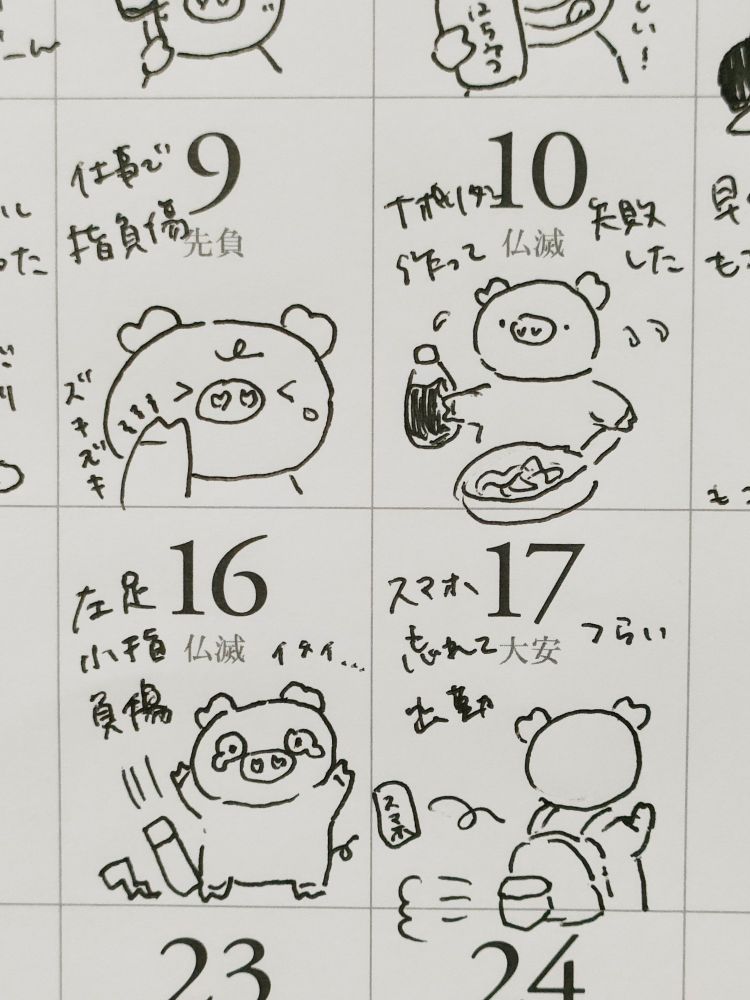 はちみつ
9
仕事で
指負傷
先負
ズキズキ
10
ナポリタン
作って
仏滅
失敗
した
16
左足
小指
負傷
仏滅
イタイ...
17
スマホ
忘れて
出勤
大安
つらい
スマホ
23
24